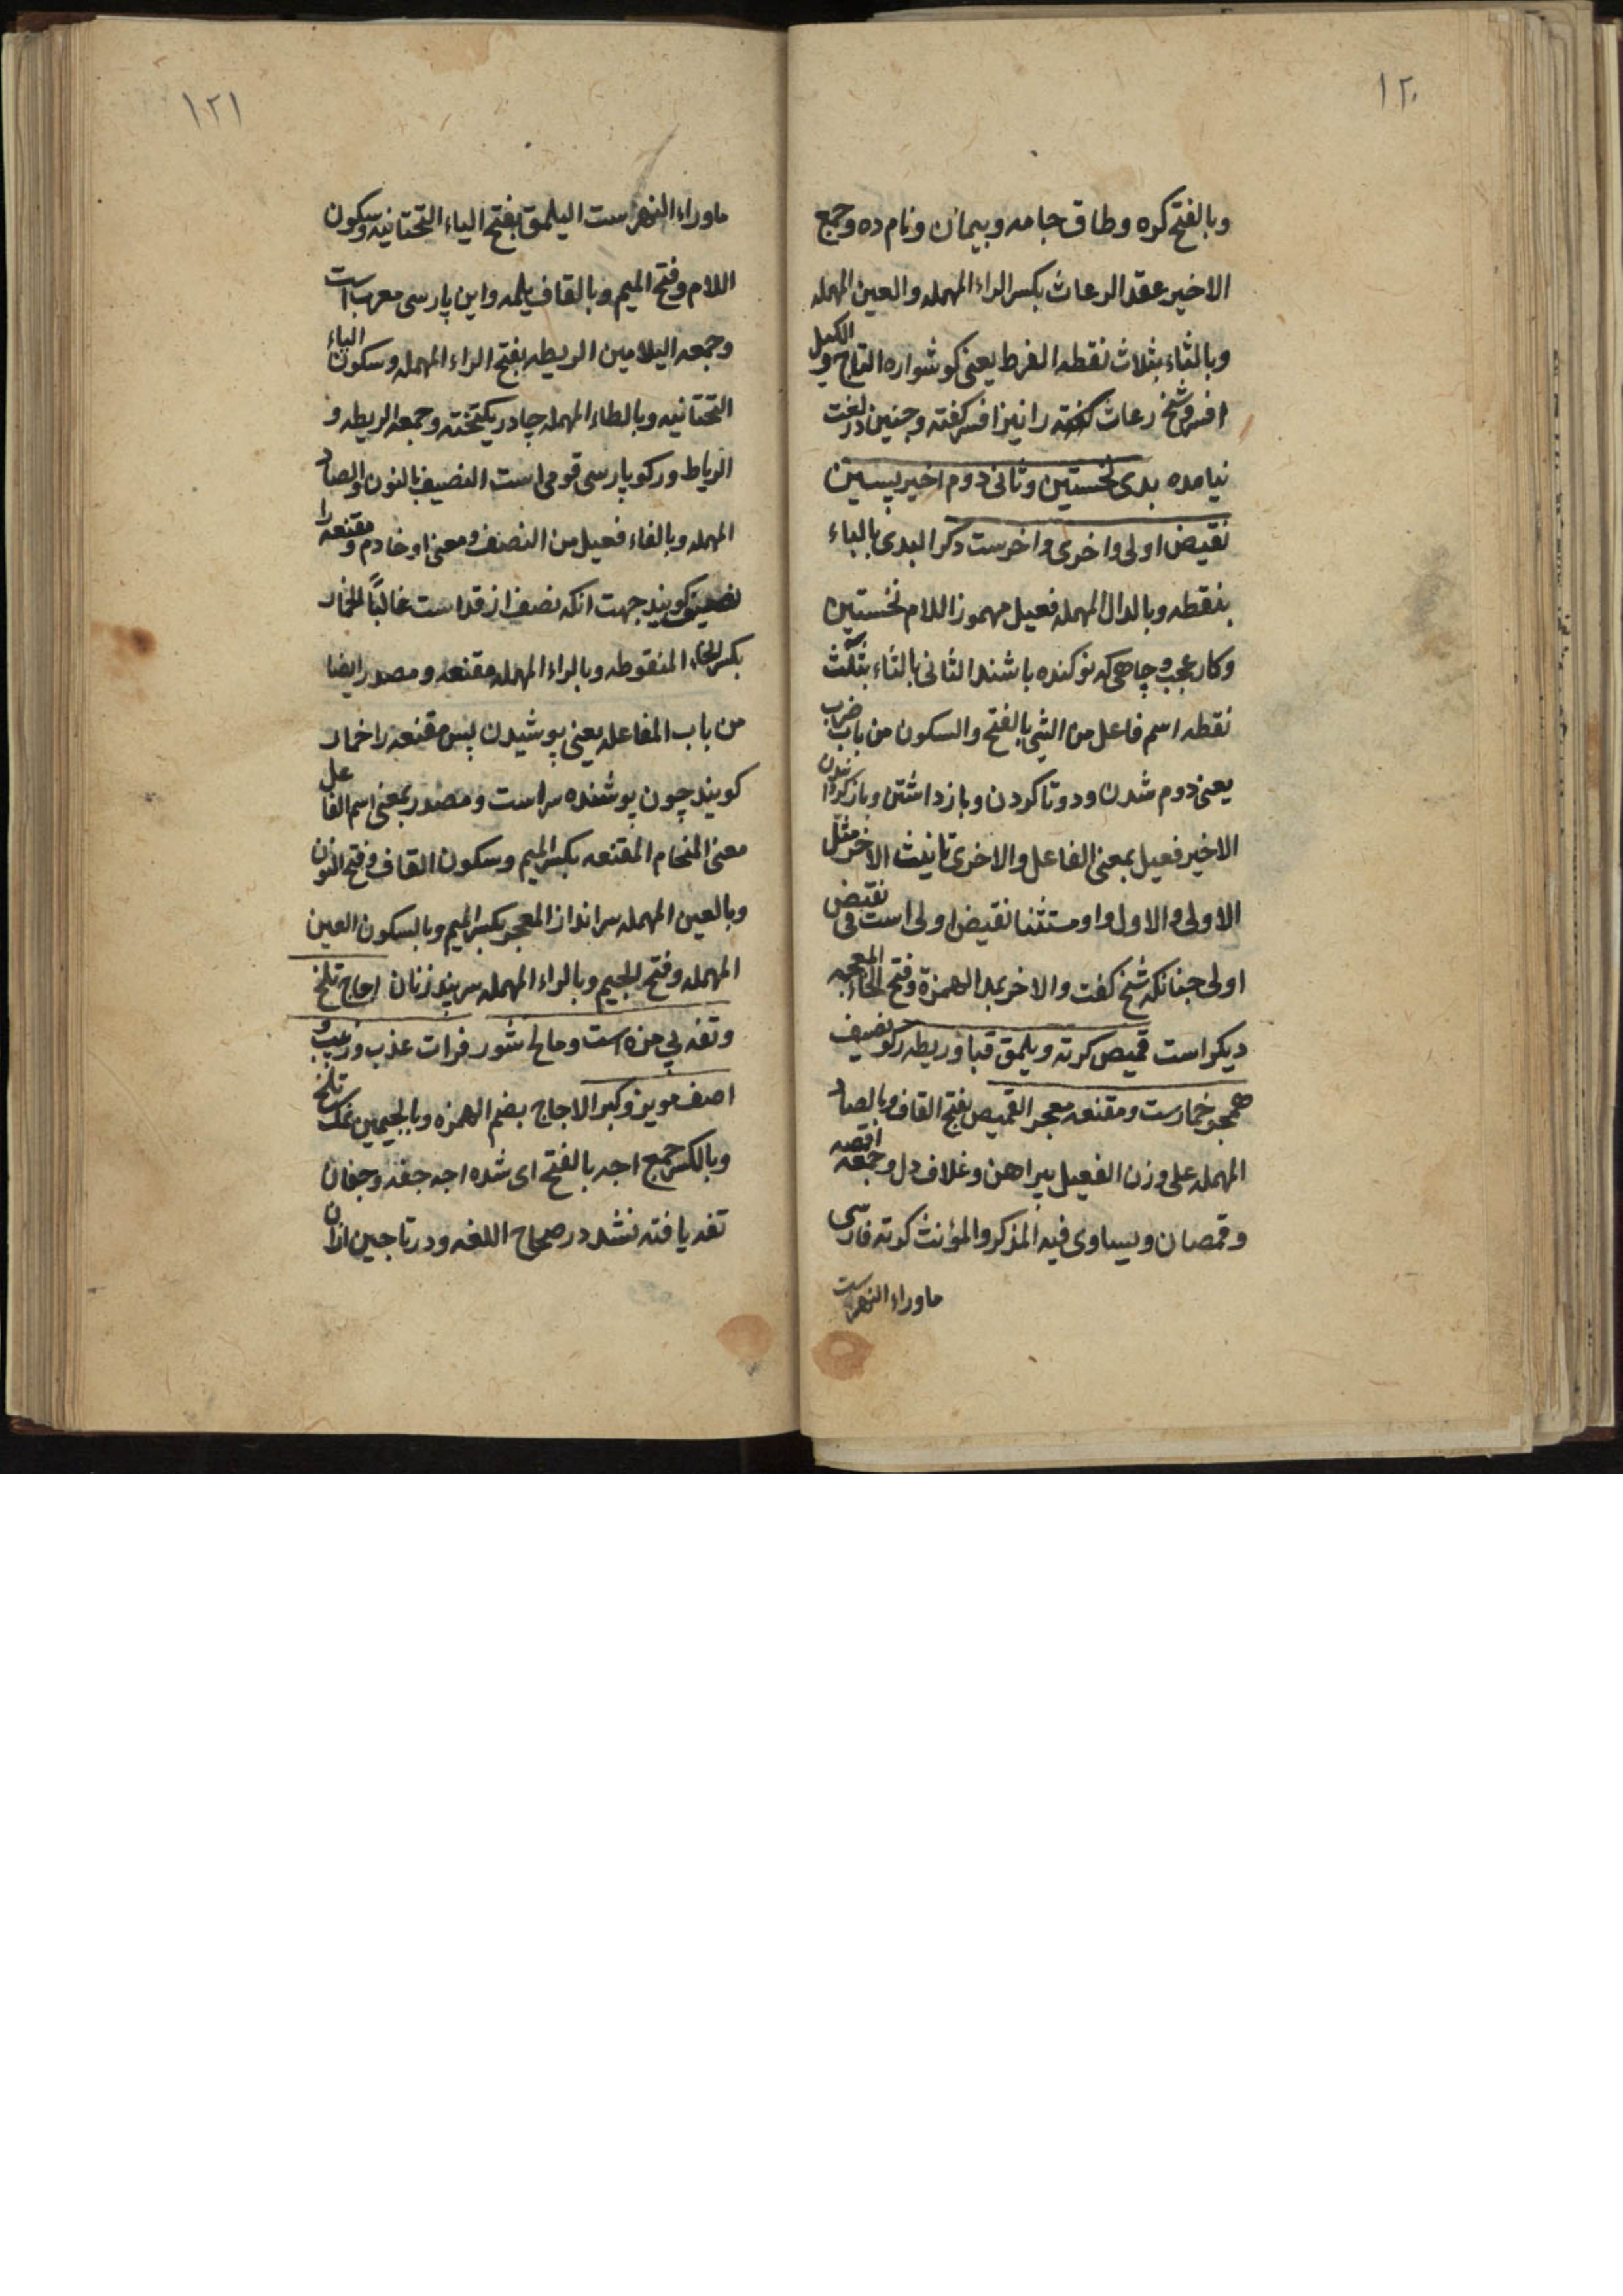 ۱۲۰
وبالفتح کره وطاق جامه وپیمان ونام ده وجمع
الاخیر عقد الرعاث بکسر الراء المهمله والعین المهمله
وبالثاء بثلاث نقطه القرط یعنی کوشواره التاج و الکیل
افسر وشیخ رعاث کفته را نیز افسر کفته وچنین در لغت
نیامده بدی نخستین وثانی دوم اخیر پسین
نقیض اولی واخری واخرست دکر البدی بالباء
بنقطه وبالدال المهمله فعیل مهموز اللام نخستین
وکار عجب وچاهی که نو کنده باشند الثانی بالثاء بثلث
نقطه اسم فاعل من الثنی بالفتح والسکون من باب ضرب
یعنی دوم شدن ودوتا کردن وباز داشتن وباز کردانیدن
الاخیر فعیل بمعنی الفاعل والاخری تانیث الاخر مثل
الاولی والاول واو مستثنا نقیض اولی است فی نقیض
اولی چنانکه شیخ کفت والاخر بمد الهمزة وفتح الخاء المعجمه
دیکر است قمیص کرته ویلمق قبا وریطه رکو نصیف
همچو خمارست ومقنعه معجر القمیص بفتح القاف وبالصاد
المهمله علی وزن الفعیل پیراهن وغلاف دل وجمعه اقمصه
وقمصان ویساوی فیه المذکر والمؤنث کرته فارسی
ماوراء النهرست
۱۲۱
ماوراء النهرست الیلمق بفتح الیاء التحتانیه وسکون
اللام وفتح المیم وبالقاف یلمه واین پارسی معرب است
وجمعه الیلامین الریطه بفتح الراء المهمله وسکون الیاء
التحتانیه وبالطاء المهمله چادر یکتخته وجمعه الریطه و
الریاط ورکو پارسی قومی است النصیف بالنون والصاد
المهمله وبالفاء فعیل من النصنف ومعنی او خادم ومقنعه را
نصیف کویند جهت انکه نصف از قد است غالبًا الخمار
بکسر الخاء المنقوطه وبالراء المهمله مقنعه ومصدر ایضا
من باب المفاعله یعنی پوشیدن پس مقنعه را خمار
کویند چون پوشنده سراست ومصدر بمعنی اسم الفاعل
معنی المخام المقنعه بکسر المیم وسکون القاف وفتح النون
وبالعین المهمله سرانداز المعجر بکسر المیم وبالسکون العین
المهمله وفتح الجیم وبالراء المهمله سربند زنان اجاج تلخ
وتفه بی مزه است ومالح شور فرات عذب وزبیب و
اصف مویز وکبر الاجاج بضم الهمزه وبالجیمین نمک تلخ
وبالکسر جمع اجه بالفتح ای شده اجه جفنه وجفان
تفه یافته نشد در صحاح اللغه ودر تاجین ازان